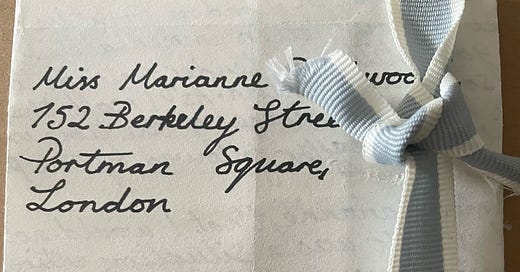 Miss Marianne
152 Berkeley Stree
Portman Square,
London